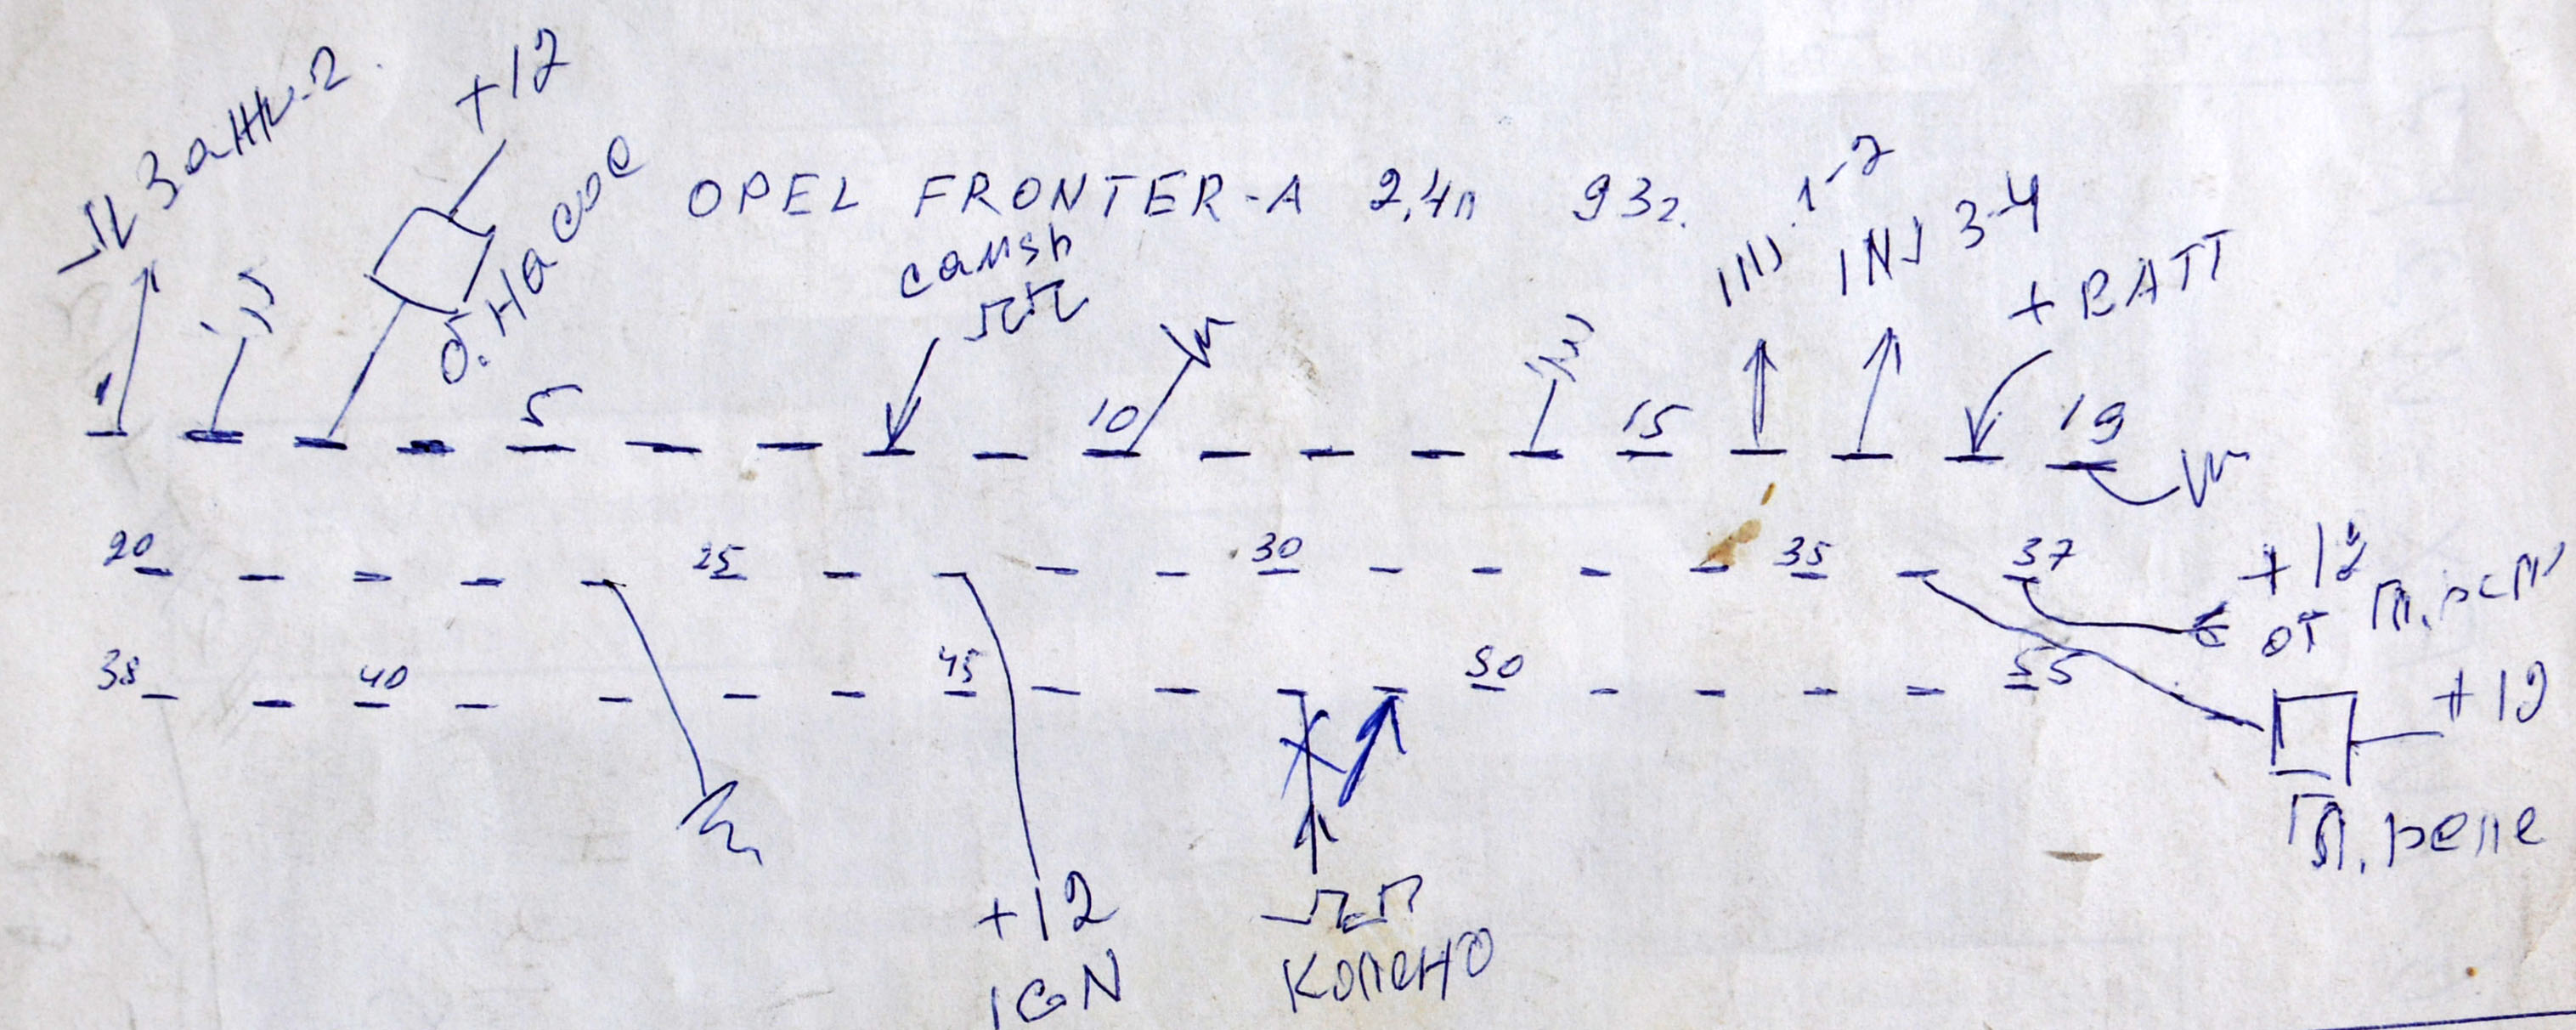 Зажиг.
+12
б. насос
OPEL FRONTER-A 2,4л 93г.
INJ 1-2
INJ 3-4
+ BATT
1
5
10
15
19
20
25
30
35
37
+12
от гл. реле
38
40
45
50
55
+12
гл. реле
+12
IGN
колено